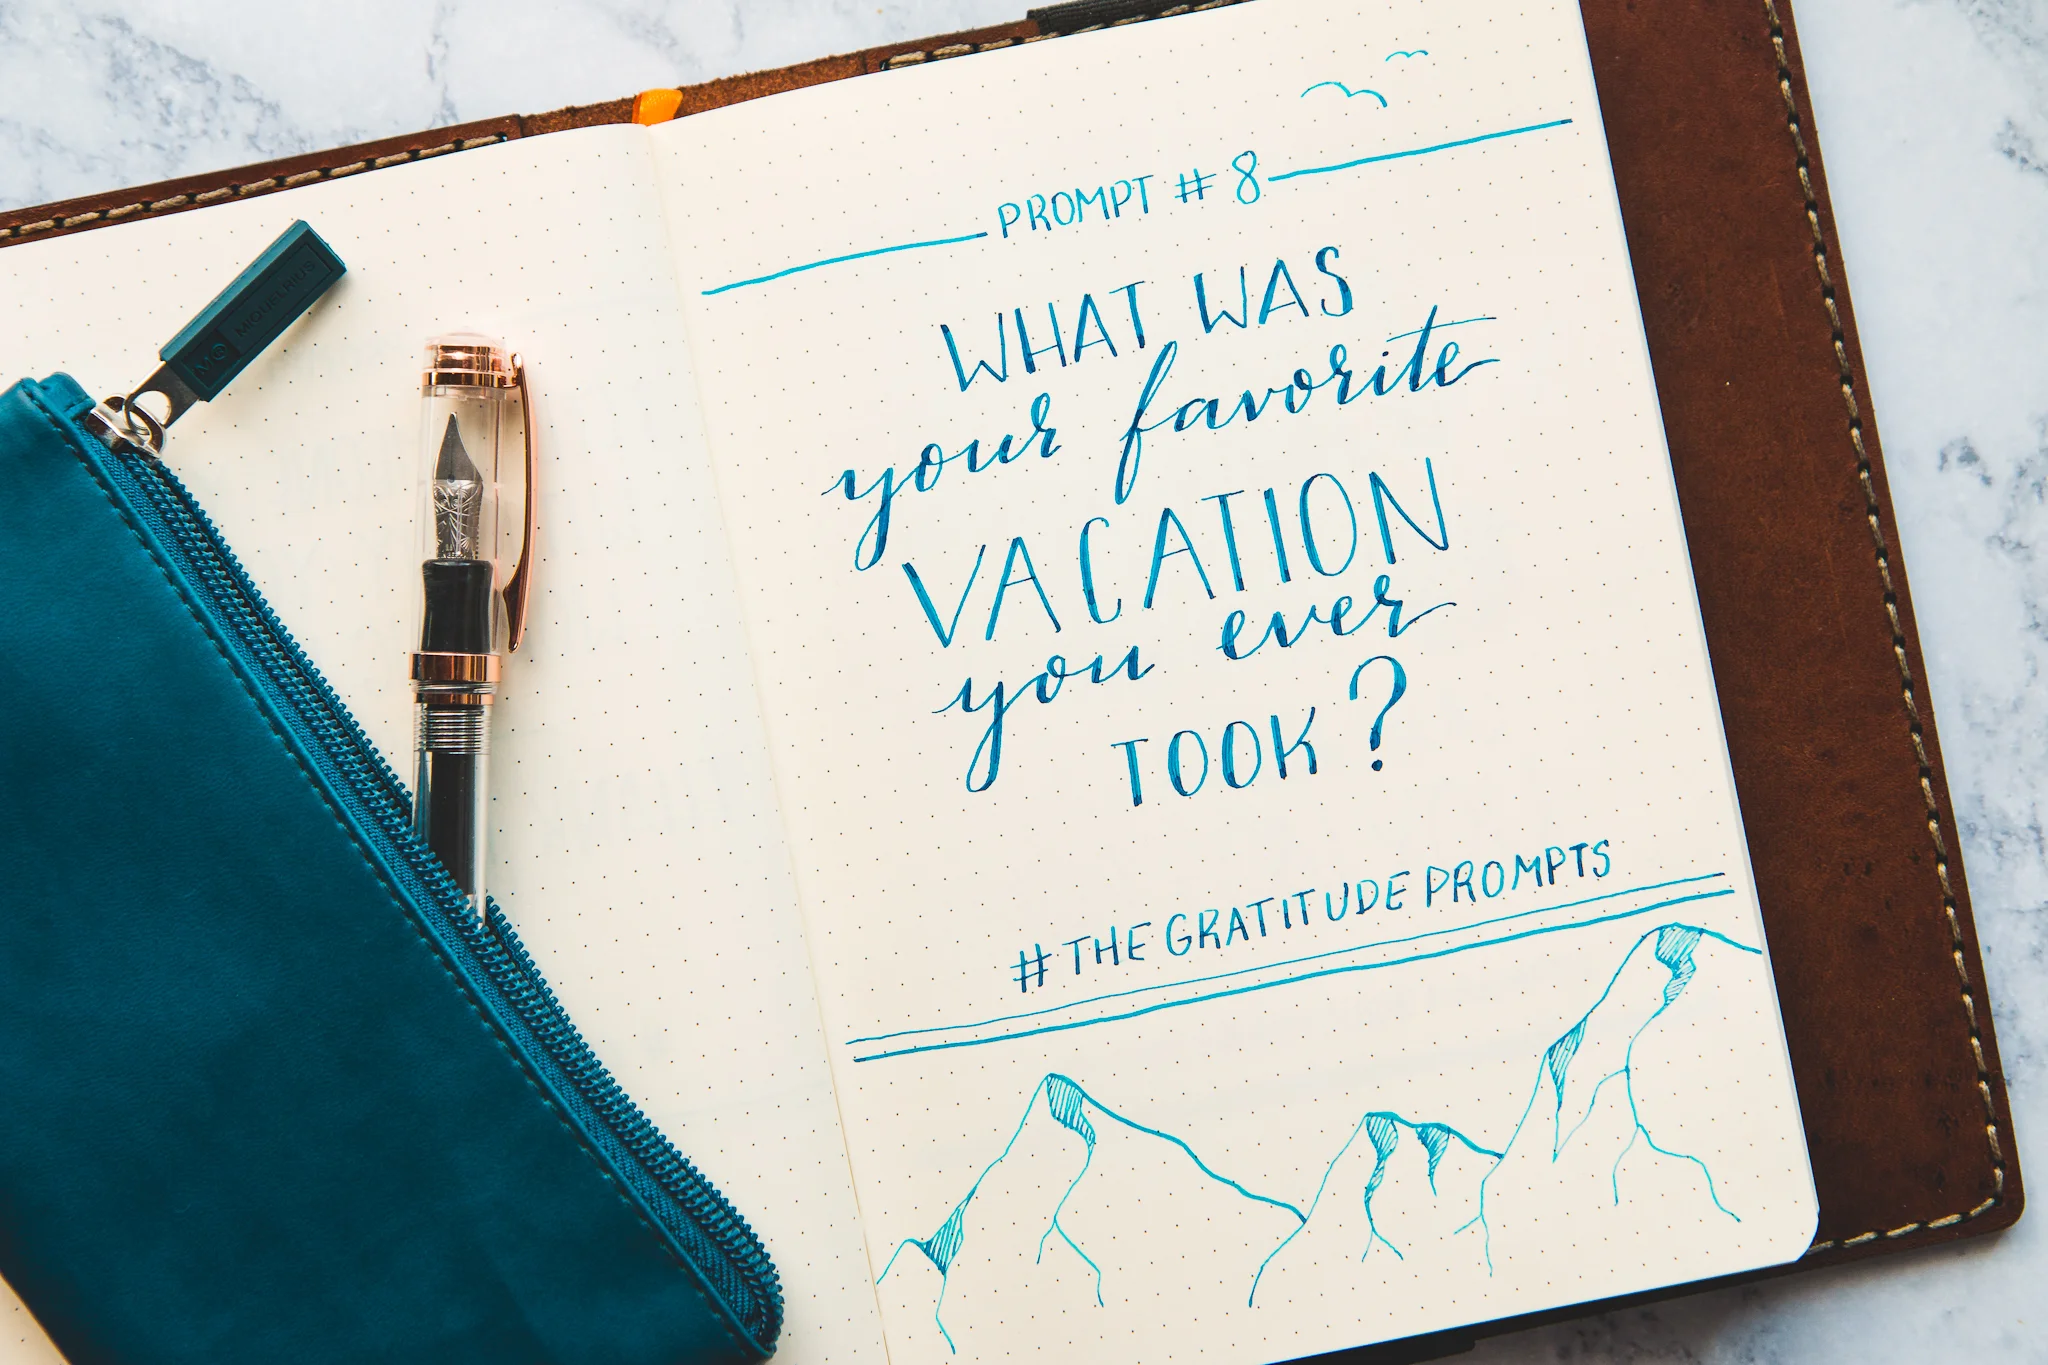 PROMPT # 8
WHAT WAS
your favorite
VACATION
you ever
TOOK?
#THE GRATITUDE PROMPTS
MIQUELRIUS